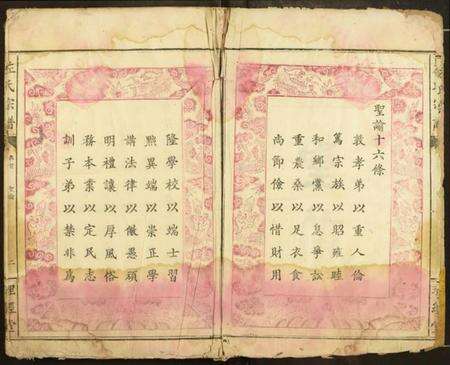 聖諭十六條
敦孝弟以重人倫
篤宗族以昭雍睦
和鄉黨以息爭訟
重農桑以足衣食
尚節儉以惜財用
隆學校以端士習
黜異端以崇正學
講法律以儆愚頑
明禮讓以厚風俗
務本業以定民志
訓子弟以禁非為
氏宗譜